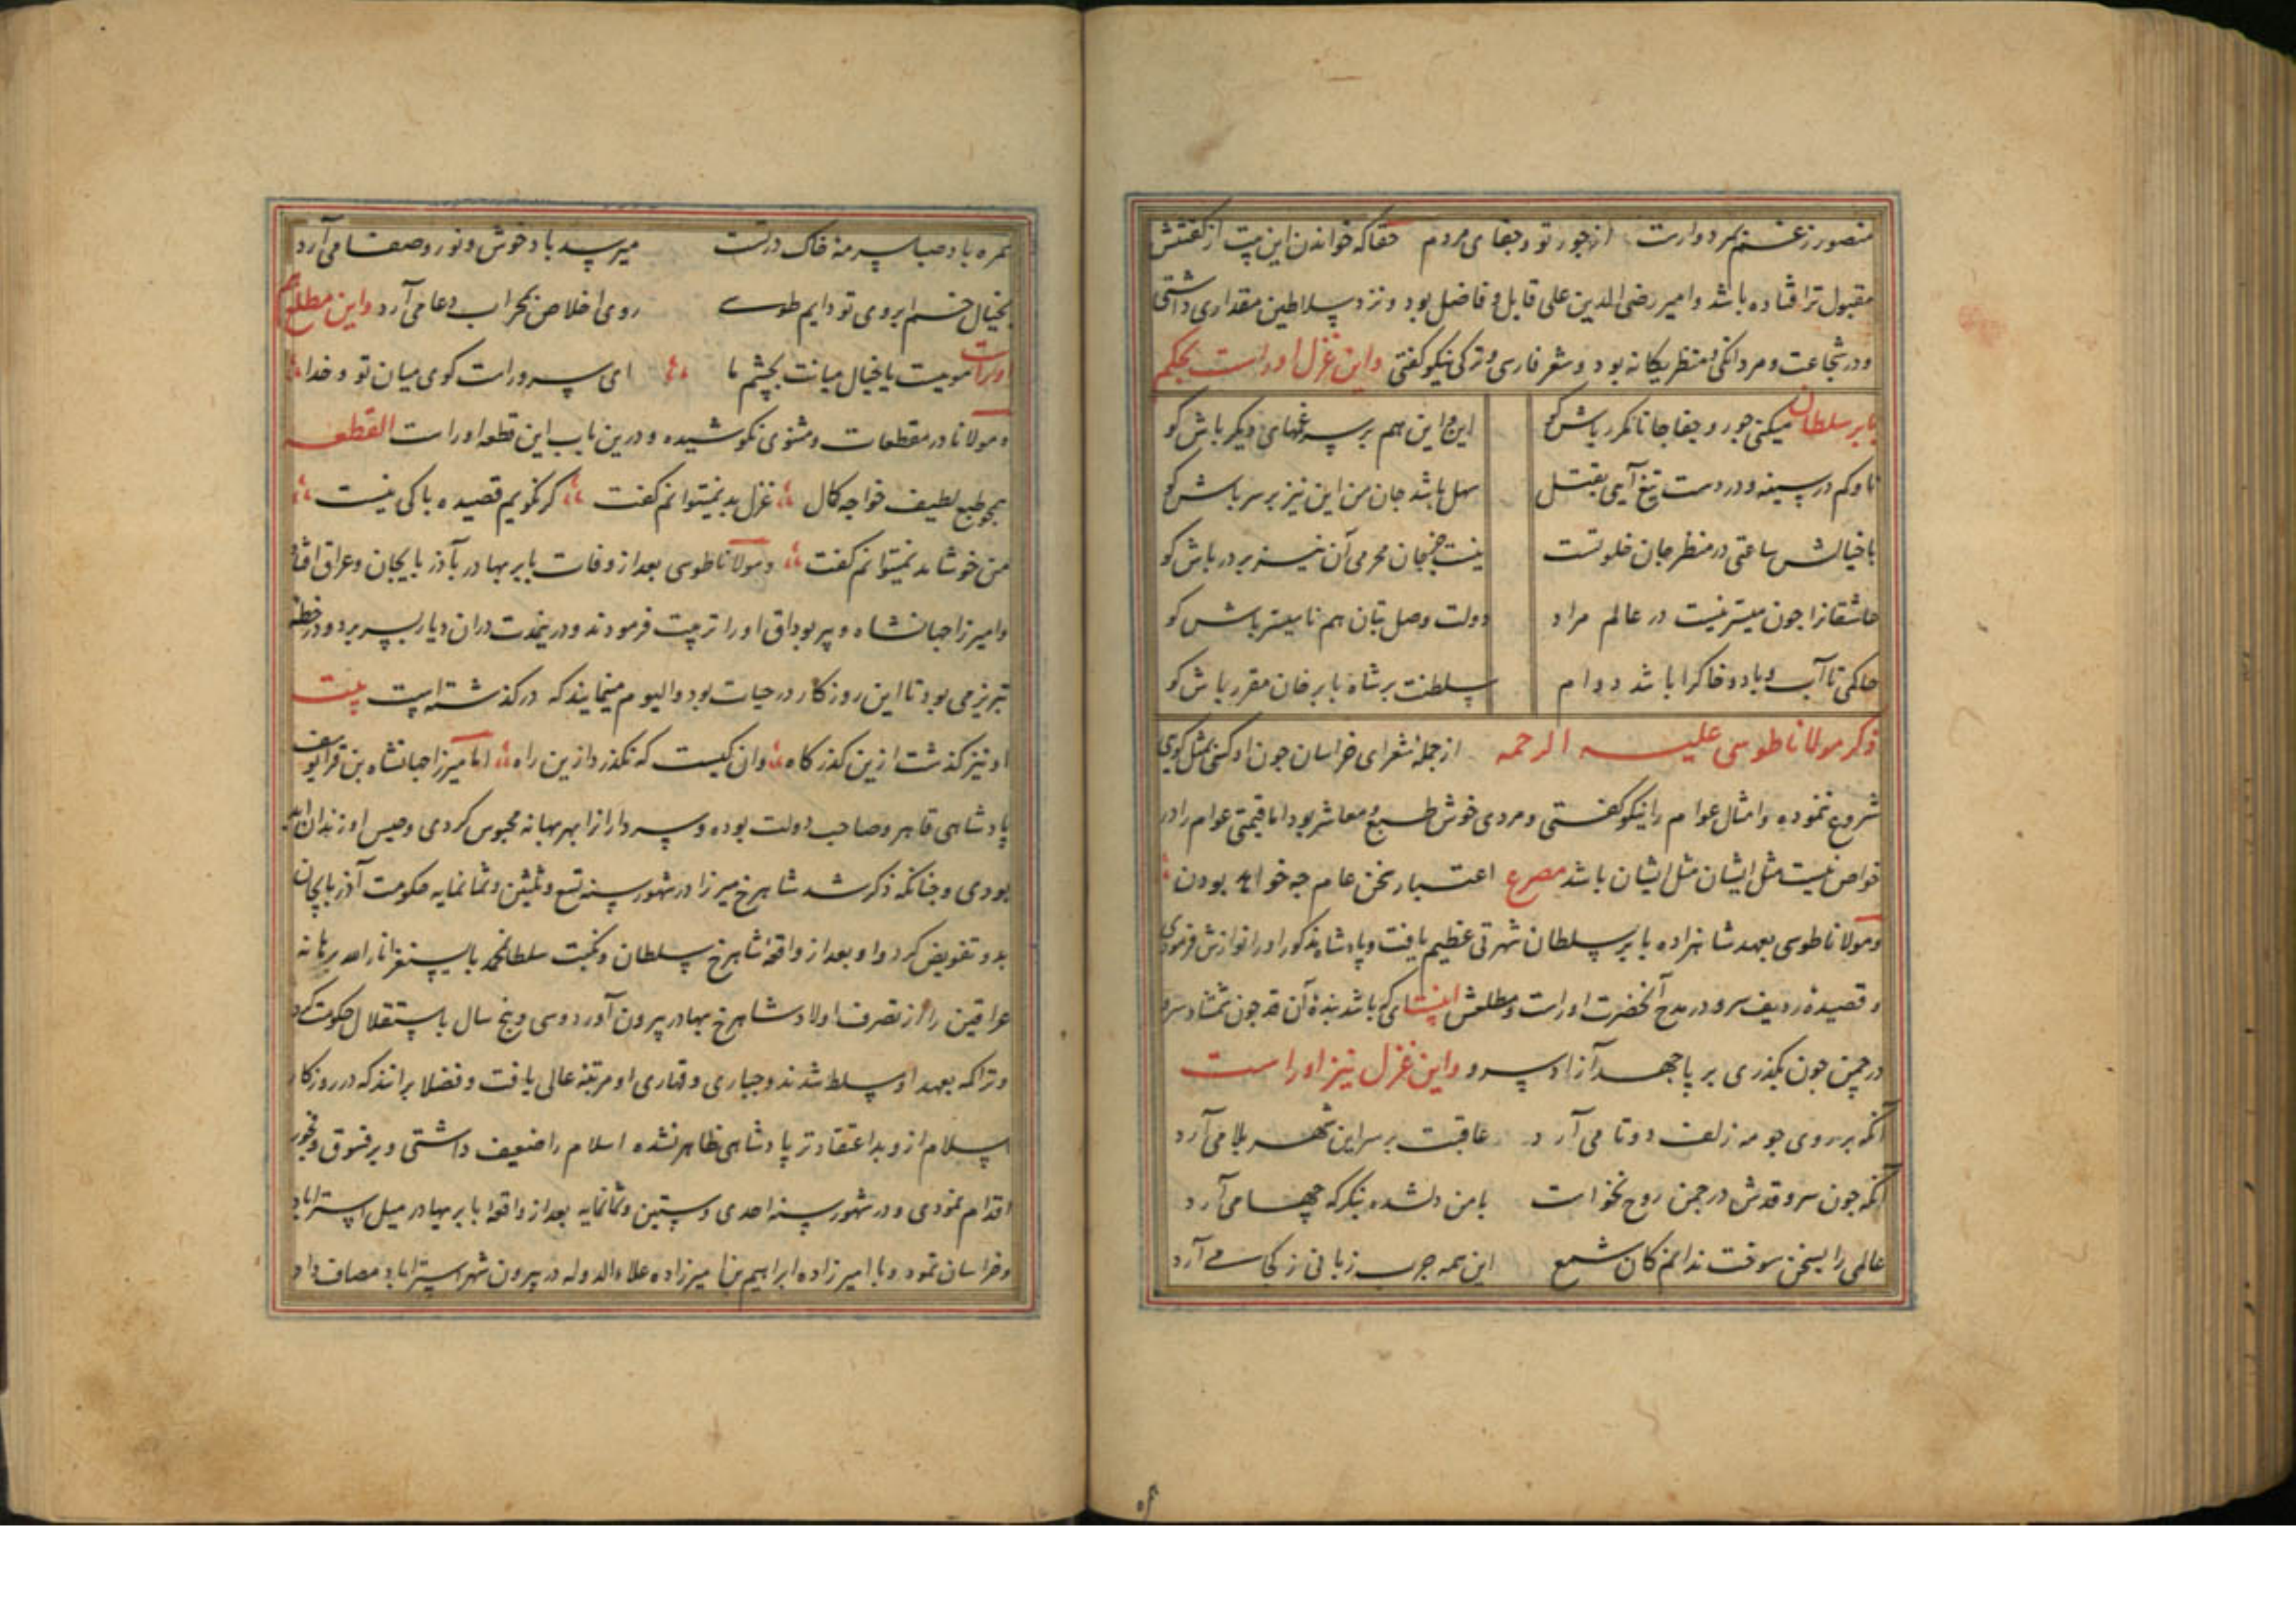 منصور ز غم بمرد و وارست از جور تو و جفای مردم حقا که خواندن این بیت از گفتنش
مقبول تر افتاده باشد و امیر رضی الدین علی قابل و فاضل بود و نزد سلاطین مقداری داشتی
و در شجاعت و مردانگی و منظر یگانه بود و شعر فارسی و ترکی نیکو گفتی و این غزل اوراست بحکم
بابر سلطان میکنی جور و جفا جانا مکرر باش کو این و این هم بر سر غمهای دیگر باش کو
ناوکم در سینه و در دست تیغ آیی بقتل سهل باشد جان من این نیز بر سر باش کو
با خیالش ساعتی در منظر جان خلوتست نیست جان محرمی آن نیز بر در باش کو
عاشقانرا جون میسر نیست در عالم مراد دولت وصل بتان هم نا میسر باش کو
تا آب و باد و خاک را باشد دوام سلطنت بر شاه بابر خان مقرر باش کو
ذکر مولانا طوسی علیه الرحمه از جمله شعرای خراسان جون او کسی بمثل کویی
شروع ننموده و امثال عوام را نیکو کفتی و مردی خوش طبع و معاشر بود اما قیمتی عوام را در
خواص نیست مثل ایشان مثل ایشان باشد مصرع اعتبار سخن عام جه خواهد بودن
و مولانا طوسی بعهد شاهزاده بابر سلطان شهرتی عظیم یافت و پادشاه مذکور اورا نوازش فرمودی
و قصیده ردیف سرو در مدح آنحضرت اوراست و مطلعش اینست ای که باشد بنده آن قد جون شمشاد سرو
در جمن جون بگذری بر پا جهد آزاد سرو و این غزل نیز اوراست
آنکه بر روی جو مه زلف دوتا می آرد عاقبت بر سر این شهر بلا می آرد
آنکه جون سرو قدش در جمن روح نخواست با من دلشده بنکر که جها می آرد
عالمی را بسخن سوخت ندانم کان شمع این همه جرب زبانی ز کجا می آرد
باد صبا سرمه خاک درتست میرسد باد خوش و نور و صفا می آرد
بخیال خم ابروی تو دایم طوسی روی اخلاص بمحراب دعا می آرد و این مطلع هم
اوراست موییست یا خیال میانت بچشم ما ای سرو راست کوی میان تو و خدا
و مولانا در مقطعات و مثنوی نکوشیده و درین باب این قطعه اوراست القطعه
همجو طبع لطیف خواجه کمال غزل بد نمیتوانم کفت کر نکویم قصیده باکی نیست
من خوشامد نمیتوانم کفت و مولانا طوسی بعد از وفات بابر بهادر بآذربایجان و عراق افتاد
و امیرزا جهانشاه و پیر بوداق اورا تربیت فرمودند و درینمدت دران دیار بسر برد و در خطه
تبریز می بود تا این روزکار در حیات بود والیوم مینمایند که درکذشته است بیت
او نیز کذشت ازین کذرکاه وان کیست که نکذرد ازین راه اما میرزا جهانشاه بن قرایوسف
پادشاهی قاهر و صاحب دولت بوده و سردارانرا بهر بهانه محبوس کردی و حبس او زندان ابد
بودی و جنانکه ذکر شد شاهرخ میرزا در شهور سنه تسع و ثلثین و ثمانمایه حکومت آذربایجان
بدو تفویض کرد و او بعد از واقعه شاهرخ سلطان و نکبت سلطان محمد بایسنغر انار الله برهانه
عراقین را از تصرف اولاد شاهرخ بهادر بیرون آورد و سی و پنج سال باستقلال حکومت کرد
و تراکمه بعهد او مسلط شدند و جباری و قهاری او مرتبه عالی یافت و فضلا برانند که در روزکار
اسلام ازو بد اعتقادتر پادشاهی ظاهر نشده اسلام را ضعیف داشتی و بر فسوق و فجور
اقدام نمودی و در شهور سنه احدی و ستین و ثمانمایه بعد از واقعه بابر بهادر میل استراباد
و خراسان نمود و با امیرزاده ابراهیم بن امیرزاده علاءالدوله در بیرون شهر استراباد مصاف داد